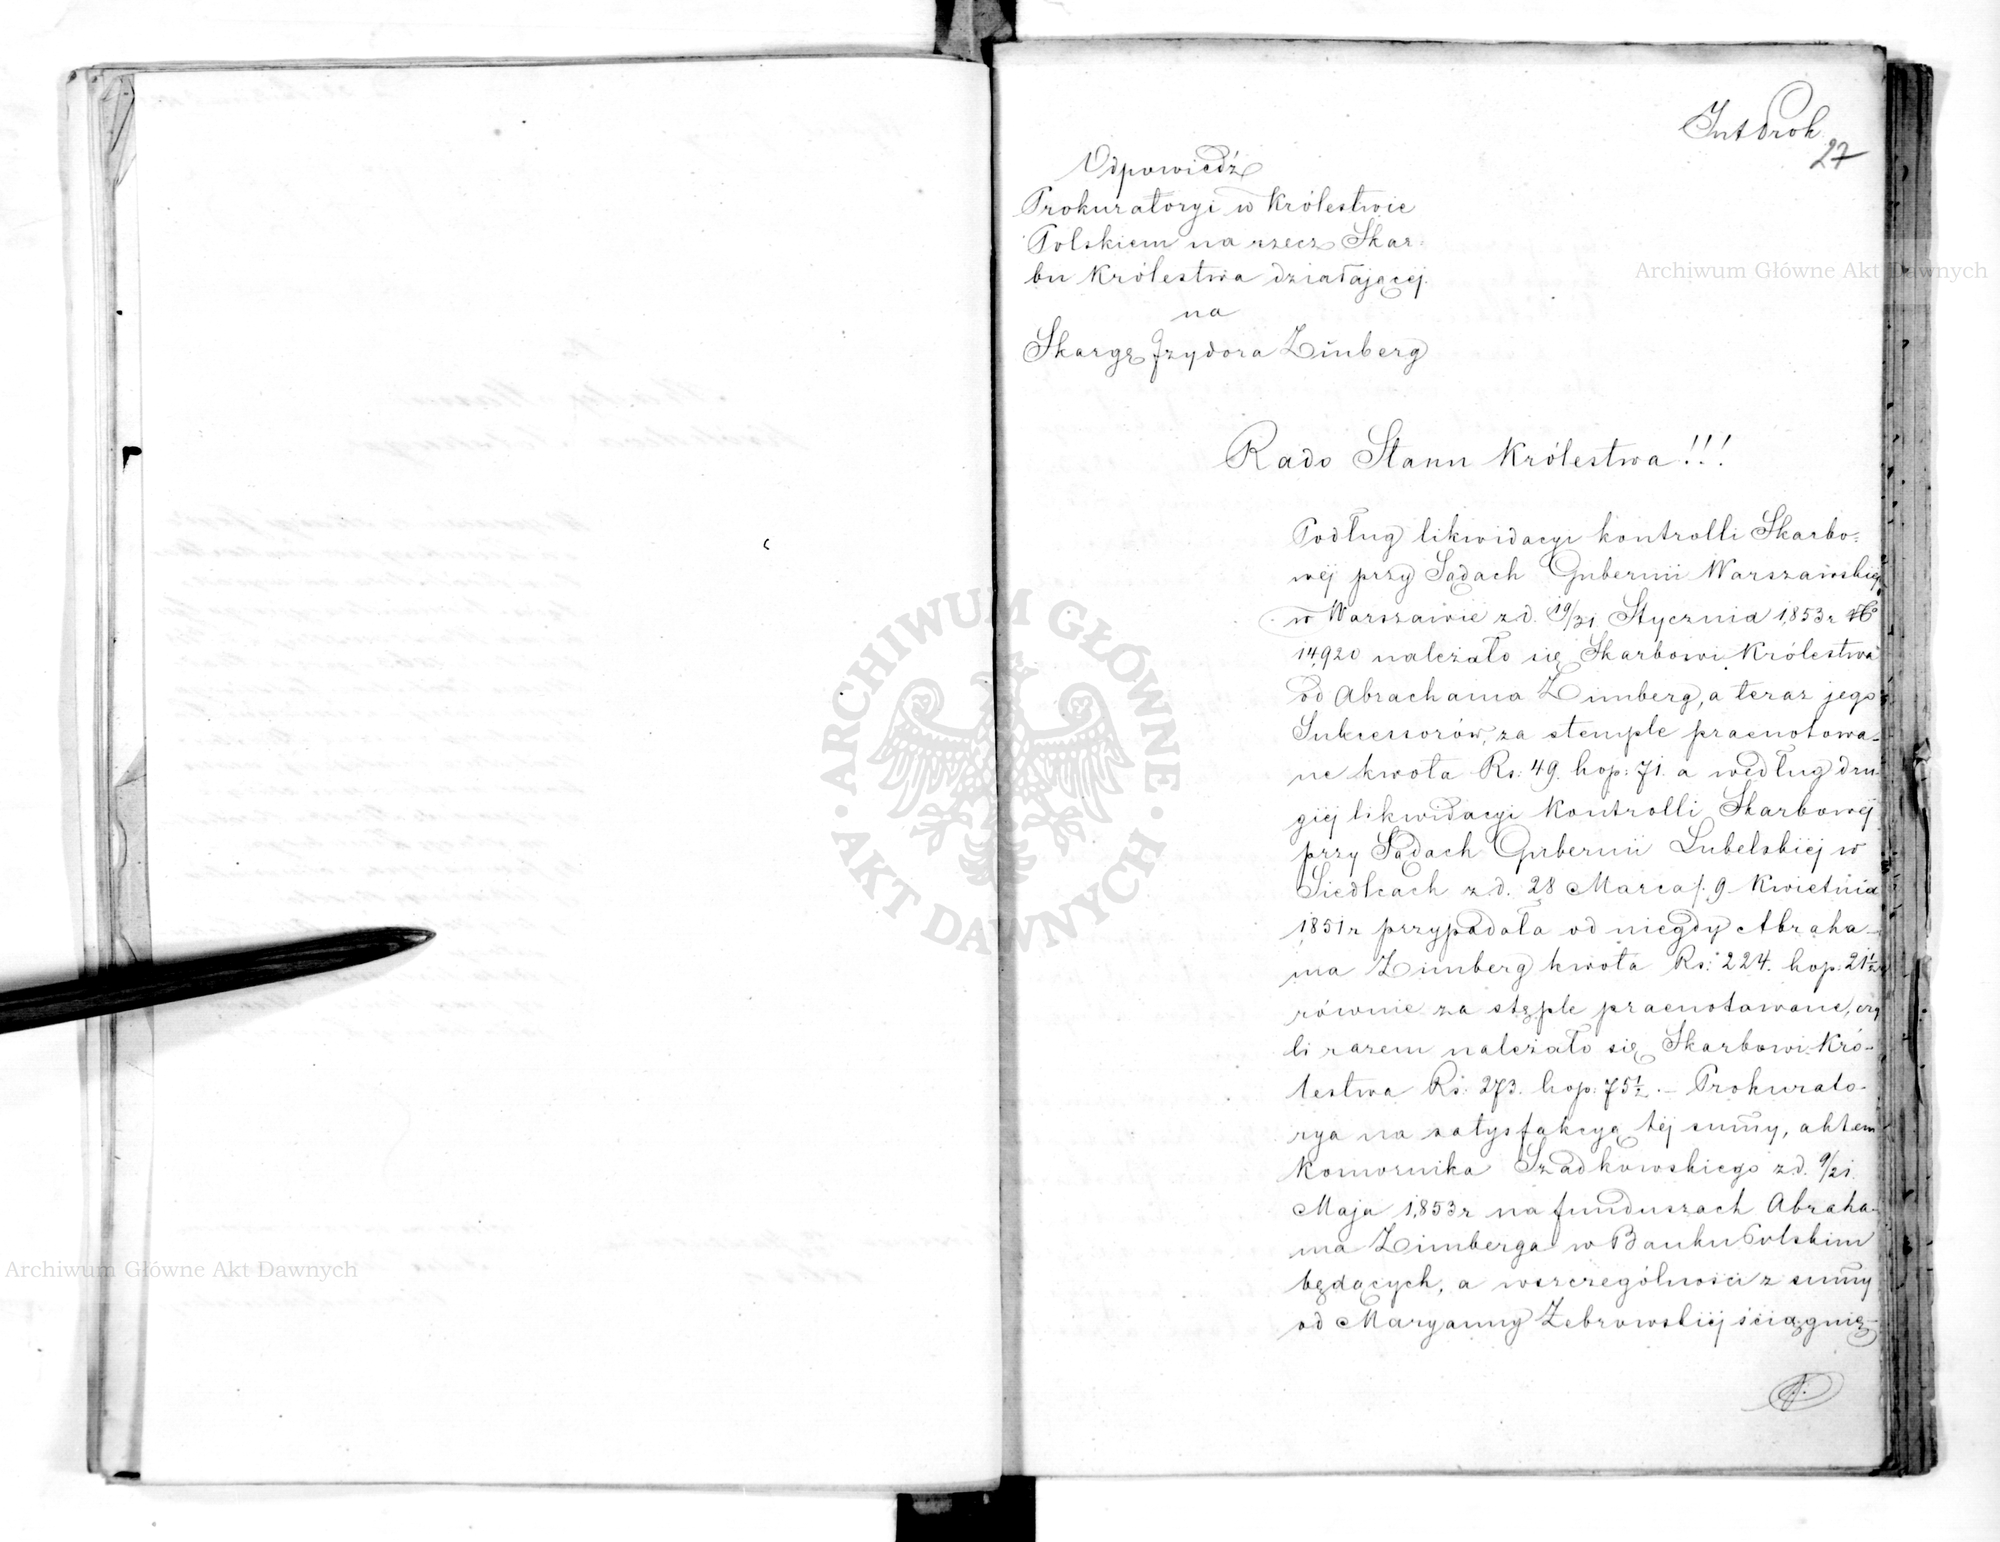 27
Odpowiedź
Prokuratoryi w Królestwie
Polskiem na rzecz Skar-
bu Królestwa działającej
na
Skargę Jzydora Zimberg
Rado Stanu Królestwa!!!
Podług likwidacyi kontrolli Skarbo-
wéj przy Sądach Gubernii Warszawskiej
w Warszawie z d. 19/31 Stycznia 1853 r No
14,920 należało się Skarbowi Królestwa
od Abrachama Zimberg, a teraz jego
Sukcessorów, za stemple praenotowa-
ne kwota Rs: 49. kop: 71. a według dru-
giéj likwidacyi Kontrolli Skarbowéj
przy Sądach Gubernii Lubelskiéj w
Siedlcach z d. 28 Marca/. 9 Kwietnia
1851 r przypadała od niegdy Abraha-
ma Zimberg kwota Rs: 224. kop: 21½
równie za stęple praenotowane, czy
li razem należało się Skarbowi Kró-
lestwa Rs: 273. kop: 75½. - Prokurato-
rya na satysfakcyą téj summy, aktem
Komornika Szadkowskiego z d. 9/21.
Maja 1,853 r na funduszach Abraha-
ma Zimberga w Banku Polskim
będących, a wszczególności z summy
od Maryanny Żebrowskiéj ściągnię-
Archiwum Główne Akt Dawnych
Archiwum Główne Akt Dawnych
ARCHIWUM GŁÓWNE · AKT DAWNYCH ·